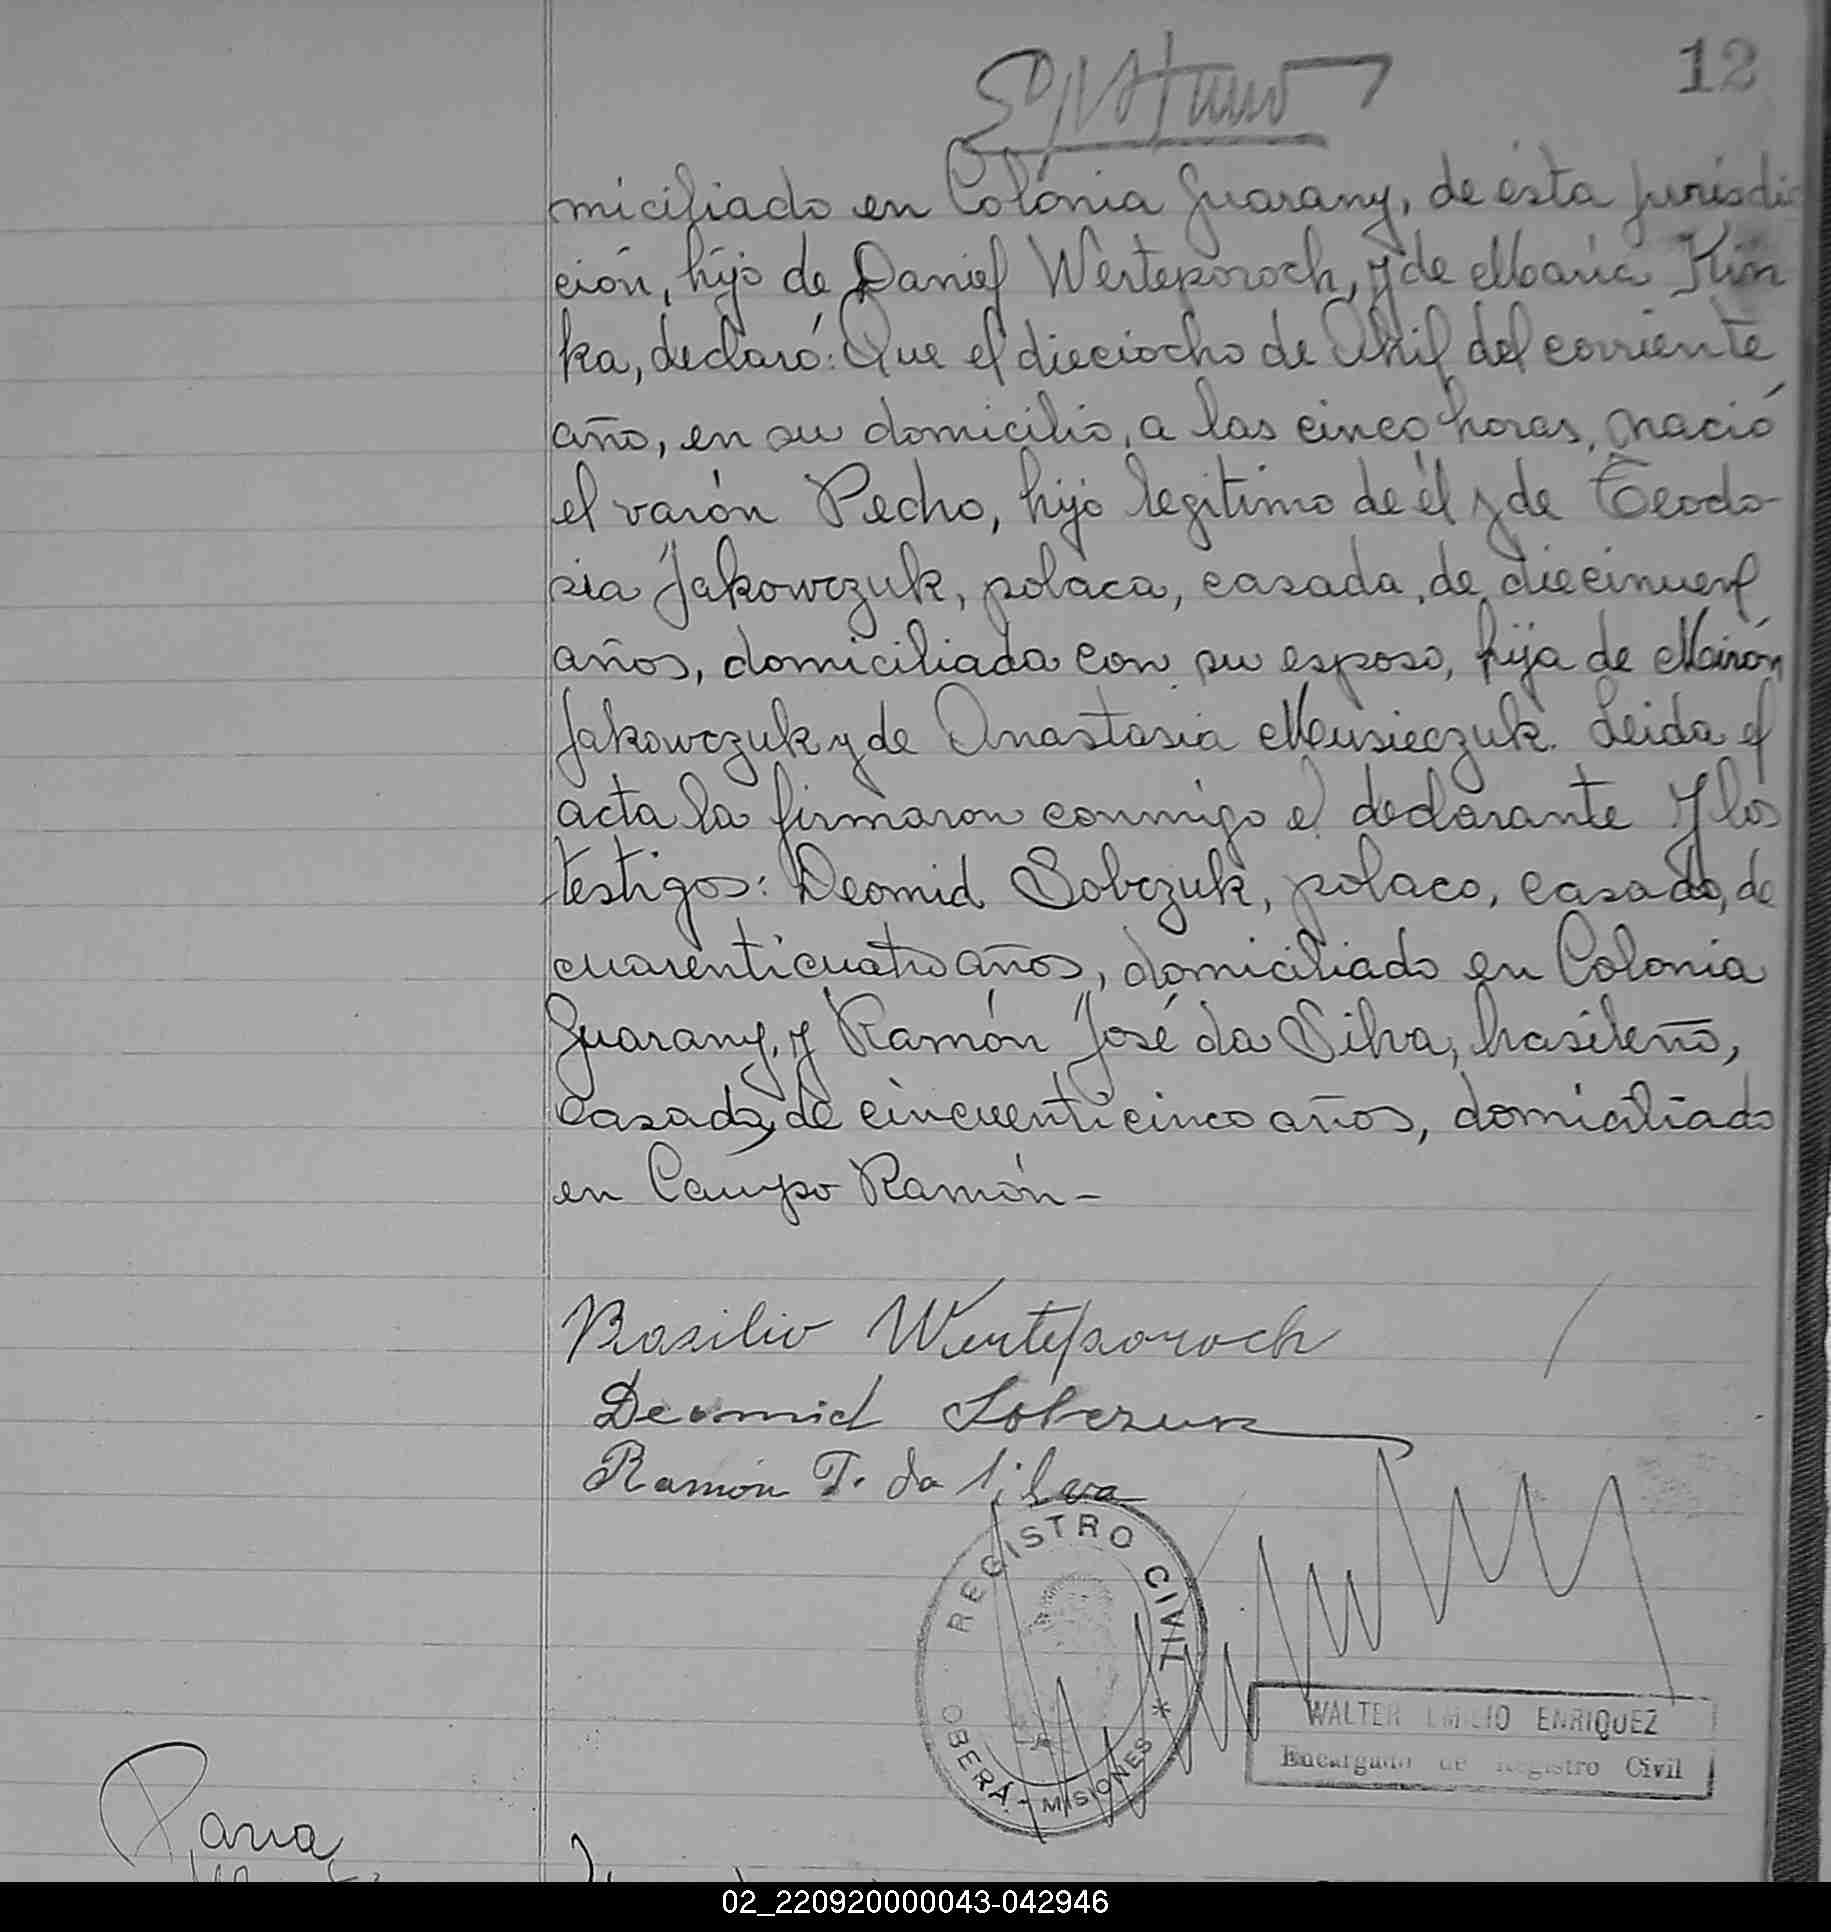 12
miciliado en Colonia Guarany, de ésta jurisdic
ción, hijo de Daniel Werteporoch, y de María Kin
ka, declaró: Que el dieciocho de Abril del corriente
año, en su domicilio, a las cinco horas, nació
el varón Pedro, hijo legitimo de él y de Teodo-
sia Jakowczuk, polaca, casada, de diecinueve
años, domiciliada con su esposo, hija de Mairón
Jakowczuk y de Anastasia Musieczuk. Leida el
acta la firmaron conmigo el declarante y los
testigos: Deomid Sobczuk, polaco, casado, de
cuarenticuatro años, domiciliado en Colonia
Guarany, y Ramón José da Silva, brasileño,
casado, de cincuenticinco años, domiciliado
en Campo Ramón-
Basilio Werteporoch
Deomid Sobczuk
Ramón J. da Silva
REGISTRO CIVIL
OBERÁ - MISIONES *
WALTER EMILIO ENRIQUEZ
Encargado de Registro Civil
02_220920000043-042946